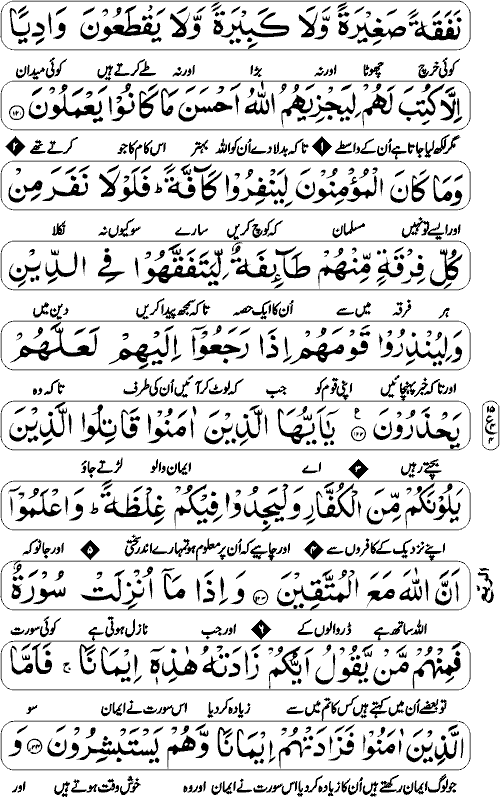 نَفَقَةً صَغِيْرَةً وَّلَا كَبِيْرَةً وَّلَا يَقْطَعُوْنَ وَادِيًا
کوئی خرچ چھوٹا اور نہ بڑا اور نہ طے کرتے ہیں کوئی میدان
اِلَّا كُتِبَ لَهُمْ لِيَجْزِيَهُمُ اللّٰهُ اَحْسَنَ مَا كَانُوْا يَعْمَلُوْنَ ﴿۱۲۱﴾
مگر لکھ لیا جاتا ہے اُن کے واسطے ۱ تاکہ بدلا دے اُن کو اللہ بہتر اس کام کا جو کرتے تھے ۲
وَمَا كَانَ الْمُؤْمِنُوْنَ لِيَنْفِرُوْا كَآفَّةً ؕ فَلَوْلَا نَفَرَ مِنْ
اور ایسے تو نہیں مسلمان کہ کوچ کریں سارے سو کیوں نہ نکلا
كُلِّ فِرْقَةٍ مِّنْهُمْ طَآىِٕفَةٌ لِّيَتَفَقَّهُوْا فِي الدِّيْنِ
ہر فرقہ میں سے اُن کا ایک حصہ تاکہ سمجھ پیدا کریں دین میں
وَلِيُنْذِرُوْا قَوْمَهُمْ اِذَا رَجَعُوْۤا اِلَيْهِمْ لَعَلَّهُمْ
اور تاکہ خبر پہنچائیں اپنی قوم کو جب کہ لوٹ کر آئیں اُن کی طرف تاکہ وہ
يَحْذَرُوْنَ ﴿۱۲۲﴾ يٰۤاَيُّهَا الَّذِيْنَ اٰمَنُوْا قَاتِلُوا الَّذِيْنَ
بچتے رہیں ۳ اے ایمان والو لڑتے جاؤ
يَلُوْنَكُمْ مِّنَ الْكُفَّارِ وَلْيَجِدُوْا فِيْكُمْ غِلْظَةً ؕ وَاعْلَمُوْۤا
اپنے نزدیک کے کافروں سے ۴ اور چاہیے کہ اُن پر معلوم ہو تمہارے اندر سختی ۵ اور جانو کہ
اَنَّ اللّٰهَ مَعَ الْمُتَّقِيْنَ ﴿۱۲۳﴾ وَاِذَا مَاۤ اُنْزِلَتْ سُوْرَةٌ
اللہ ساتھ ہے ڈر والوں کے ۶ اور جب نازل ہوتی ہے کوئی سورت
فَمِنْهُمْ مَّنْ يَّقُوْلُ اَيُّكُمْ زَادَتْهُ هٰذِهٖۤ اِيْمَانًا ۚ فَاَمَّا
تو بعضے اُن میں کہتے ہیں کس کا تم میں سے زیادہ کر دیا اس سورت نے ایمان سو
الَّذِيْنَ اٰمَنُوْا فَزَادَتْهُمْ اِيْمَانًا وَّهُمْ يَسْتَبْشِرُوْنَ ﴿۱۲۴﴾ وَ
جو لوگ ایمان رکھتے ہیں اُن کا زیادہ کر دیا اس سورت نے ایمان اور وہ خوش وقت ہوتے ہیں اور
الربع